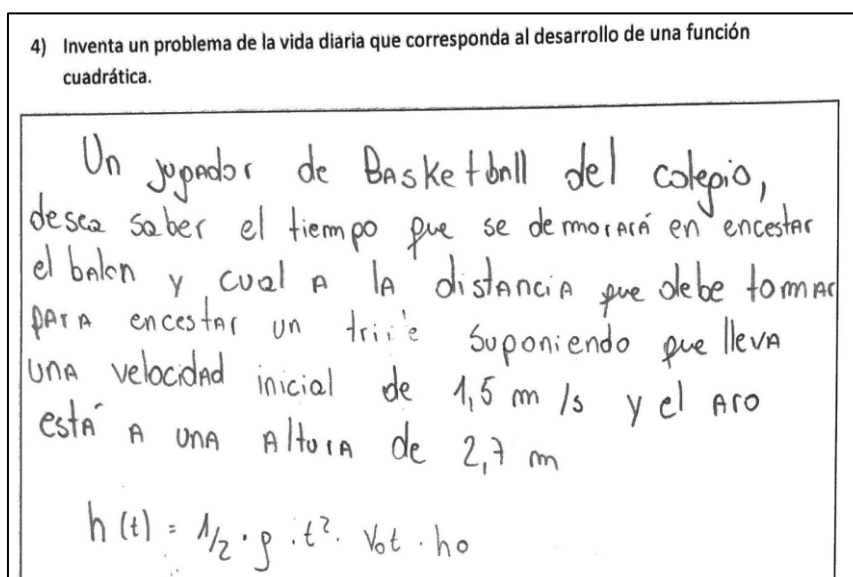 4) Inventa un problema de la vida diaria que corresponda al desarrollo de una función
cuadrática.
Un jugador de Basketball del colegio,
desea saber el tiempo que se demorará en encestar
el balon y cual A la distancia que debe tomar
para encestar un suponiendo que lleva
una velocidad inicial de 1,5 m/s y el aro
está a una altura de 2,7 m
h(t) = 1/2 · g · t² · Vot · ho